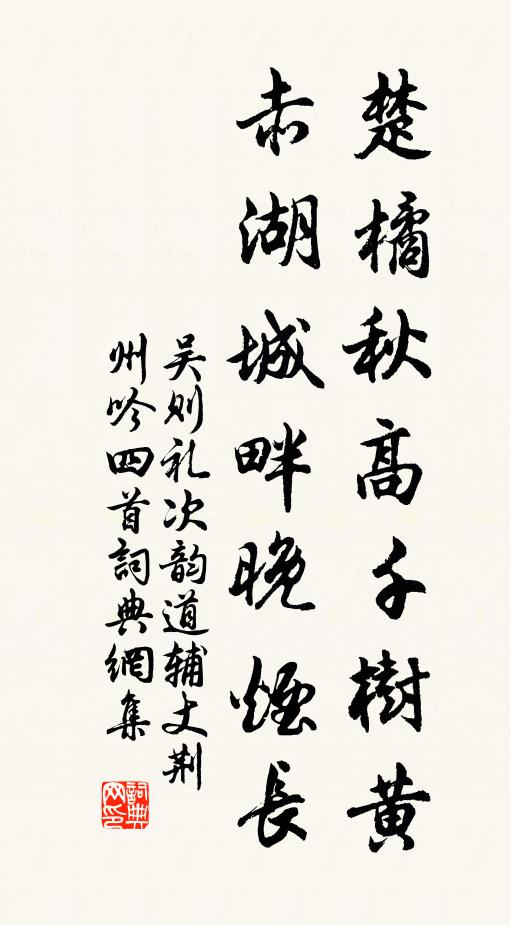 楚橘秋高千樹黄
赤湖城畔晚煙長
吴则礼次韵道辅丈荆
州吟四首詞典網集
詞典
网印